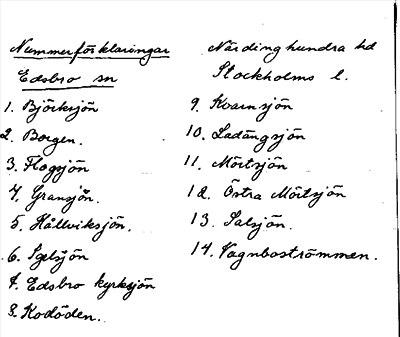 Nummerförklaringar
Edsbro sn
1. Björksjön
2. Borgen.
3. Flogsjön
4. Gransjön.
5. Hållviksjön.
6. Igelsjön
7. Edsbro kyrksjön
8. Kodöden.
Närdinghundra hd
Stockholms l.
9. Kvarnsjön
10. Ladängsjön
11. Mörtsjön
12. Östra Mörtsjön
13. Salsjön.
14. Vagnboströmmen.